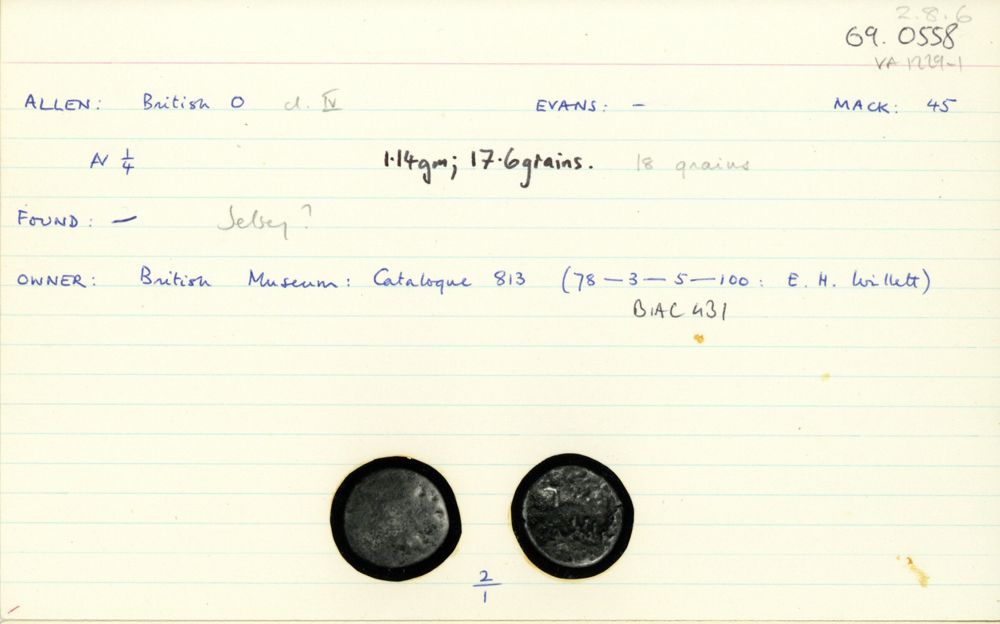 2.8.6
69.0558
VA 1229-1
ALLEN: British O cl. IV EVANS: — MACK: 45
AV 1/4 1.14gm; 17.6grains. 18 grains
FOUND: — Selsey?
OWNER: British Museum: Catalogue 813 (78—3—5—100: E. H. Willett)
BIAC 431
2/1